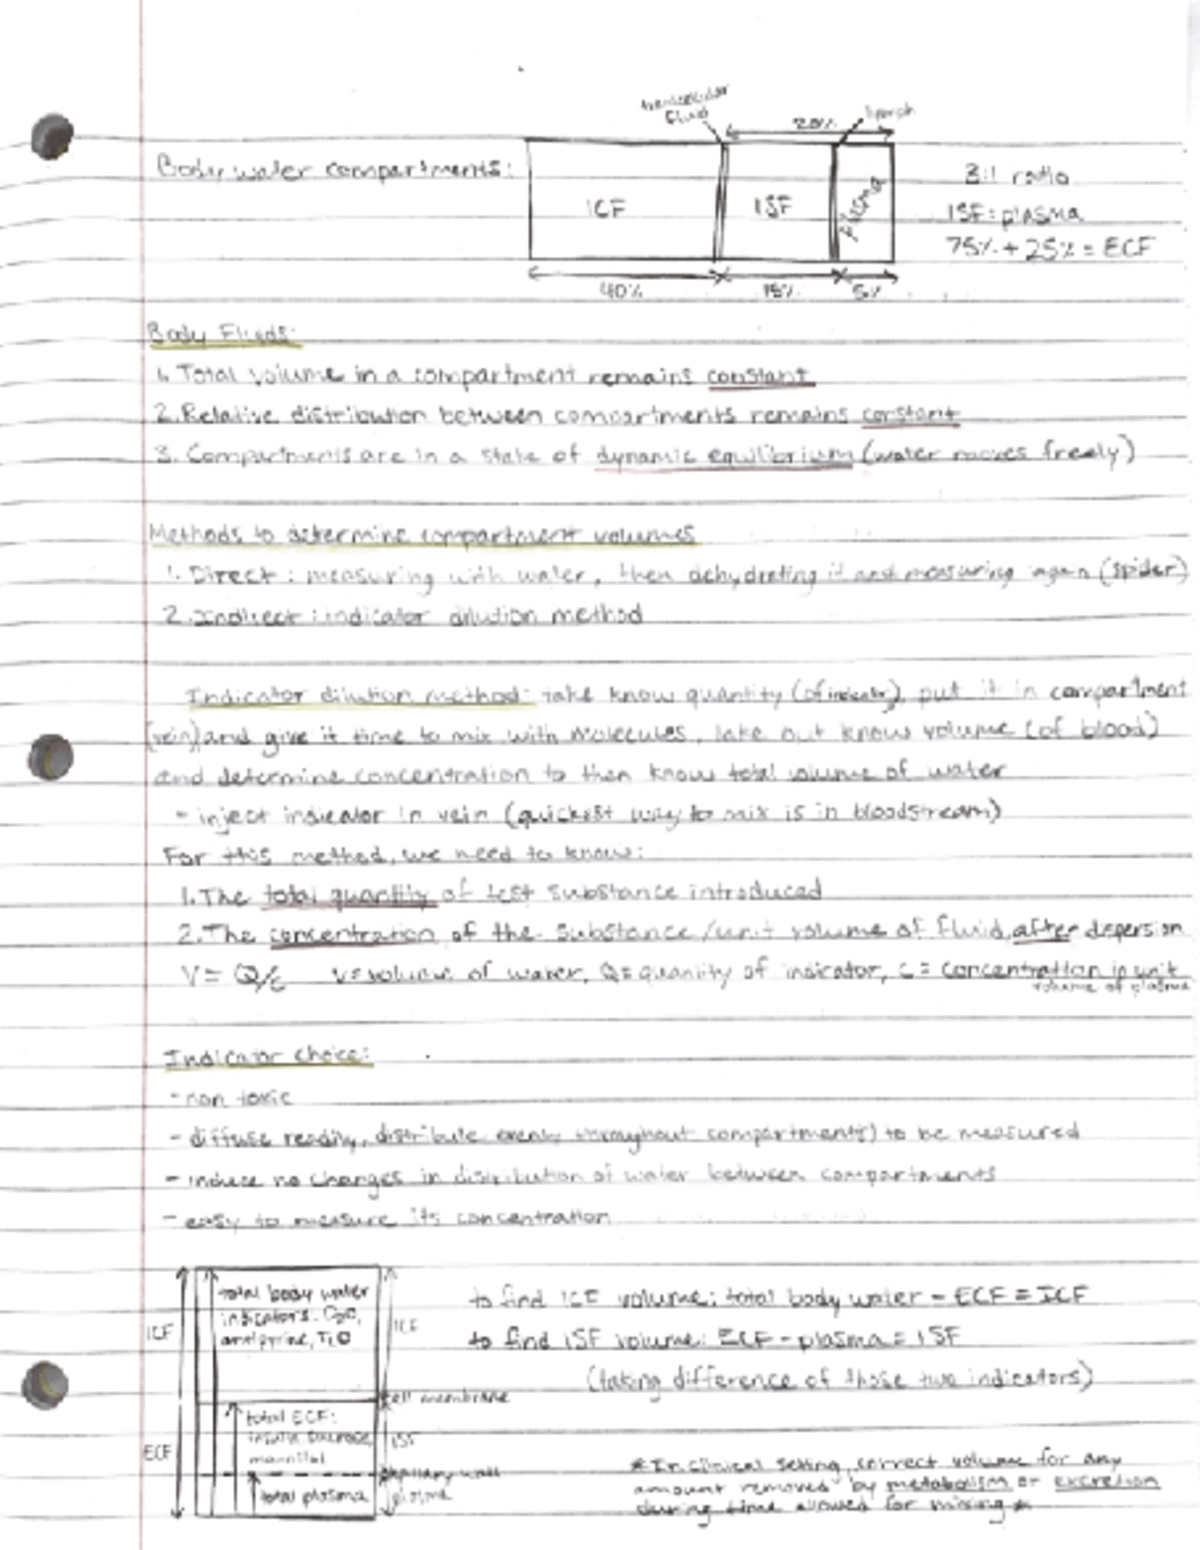 transcellular
fluid
lymph
20%
Body water compartments:
ICF
ISF
plasma
3:1 ratio
ISF:plasma
75% + 25% = ECF
40%
15%
5%
Body Fluids:
1. Total volume in a compartment remains constant
2. Relative distribution between compartments remains constant
3. Compartments are in a state of dynamic equilibrium (water moves freely)
Methods to determine compartment volumes
1. Direct: measuring with water, then dehydrating it and measuring again (spider)
2. Indirect: indicator dilution method
Indicator dilution method: take know quantity (of indicator), put it in compartment
(vein) and give it time to mix with molecules, take out know volume (of blood)
and determine concentration to then know total volume of water
- inject indicator in vein (quickest way to mix is in bloodstream)
For this method, we need to know:
1. The total quantity of test substance introduced
2. The concentration of the substance/unit volume of fluid after dispersion
V = Q/c V=volume of water, Q=quantity of indicator, C = concentration in unit
volume of plasma
Indicator choice:
- non toxic
- diffuse readily, distribute evenly throughout compartment(s) to be measured
- induce no changes in distribution of water between compartments
- easy to measure its concentration
total body water
indicators: D₂O,
antipyrine, T₂O
ICF
ICF
cell membrane
total ECF:
inulin, sucrose,
mannitol
ECF
ISF
capillary wall
total plasma
plasma
to find ICF volume: total body water - ECF = ICF
to find ISF volume: ECF - plasma = ISF
(taking difference of those two indicators)
* In clinical setting, correct volume for any
amount removed by metabolism or excretion
during time allowed for mixing *